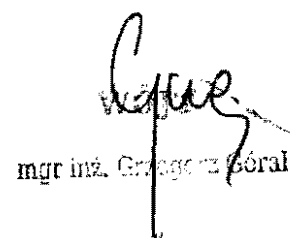 WÓJT
mgr inż. Grzegorz Góral